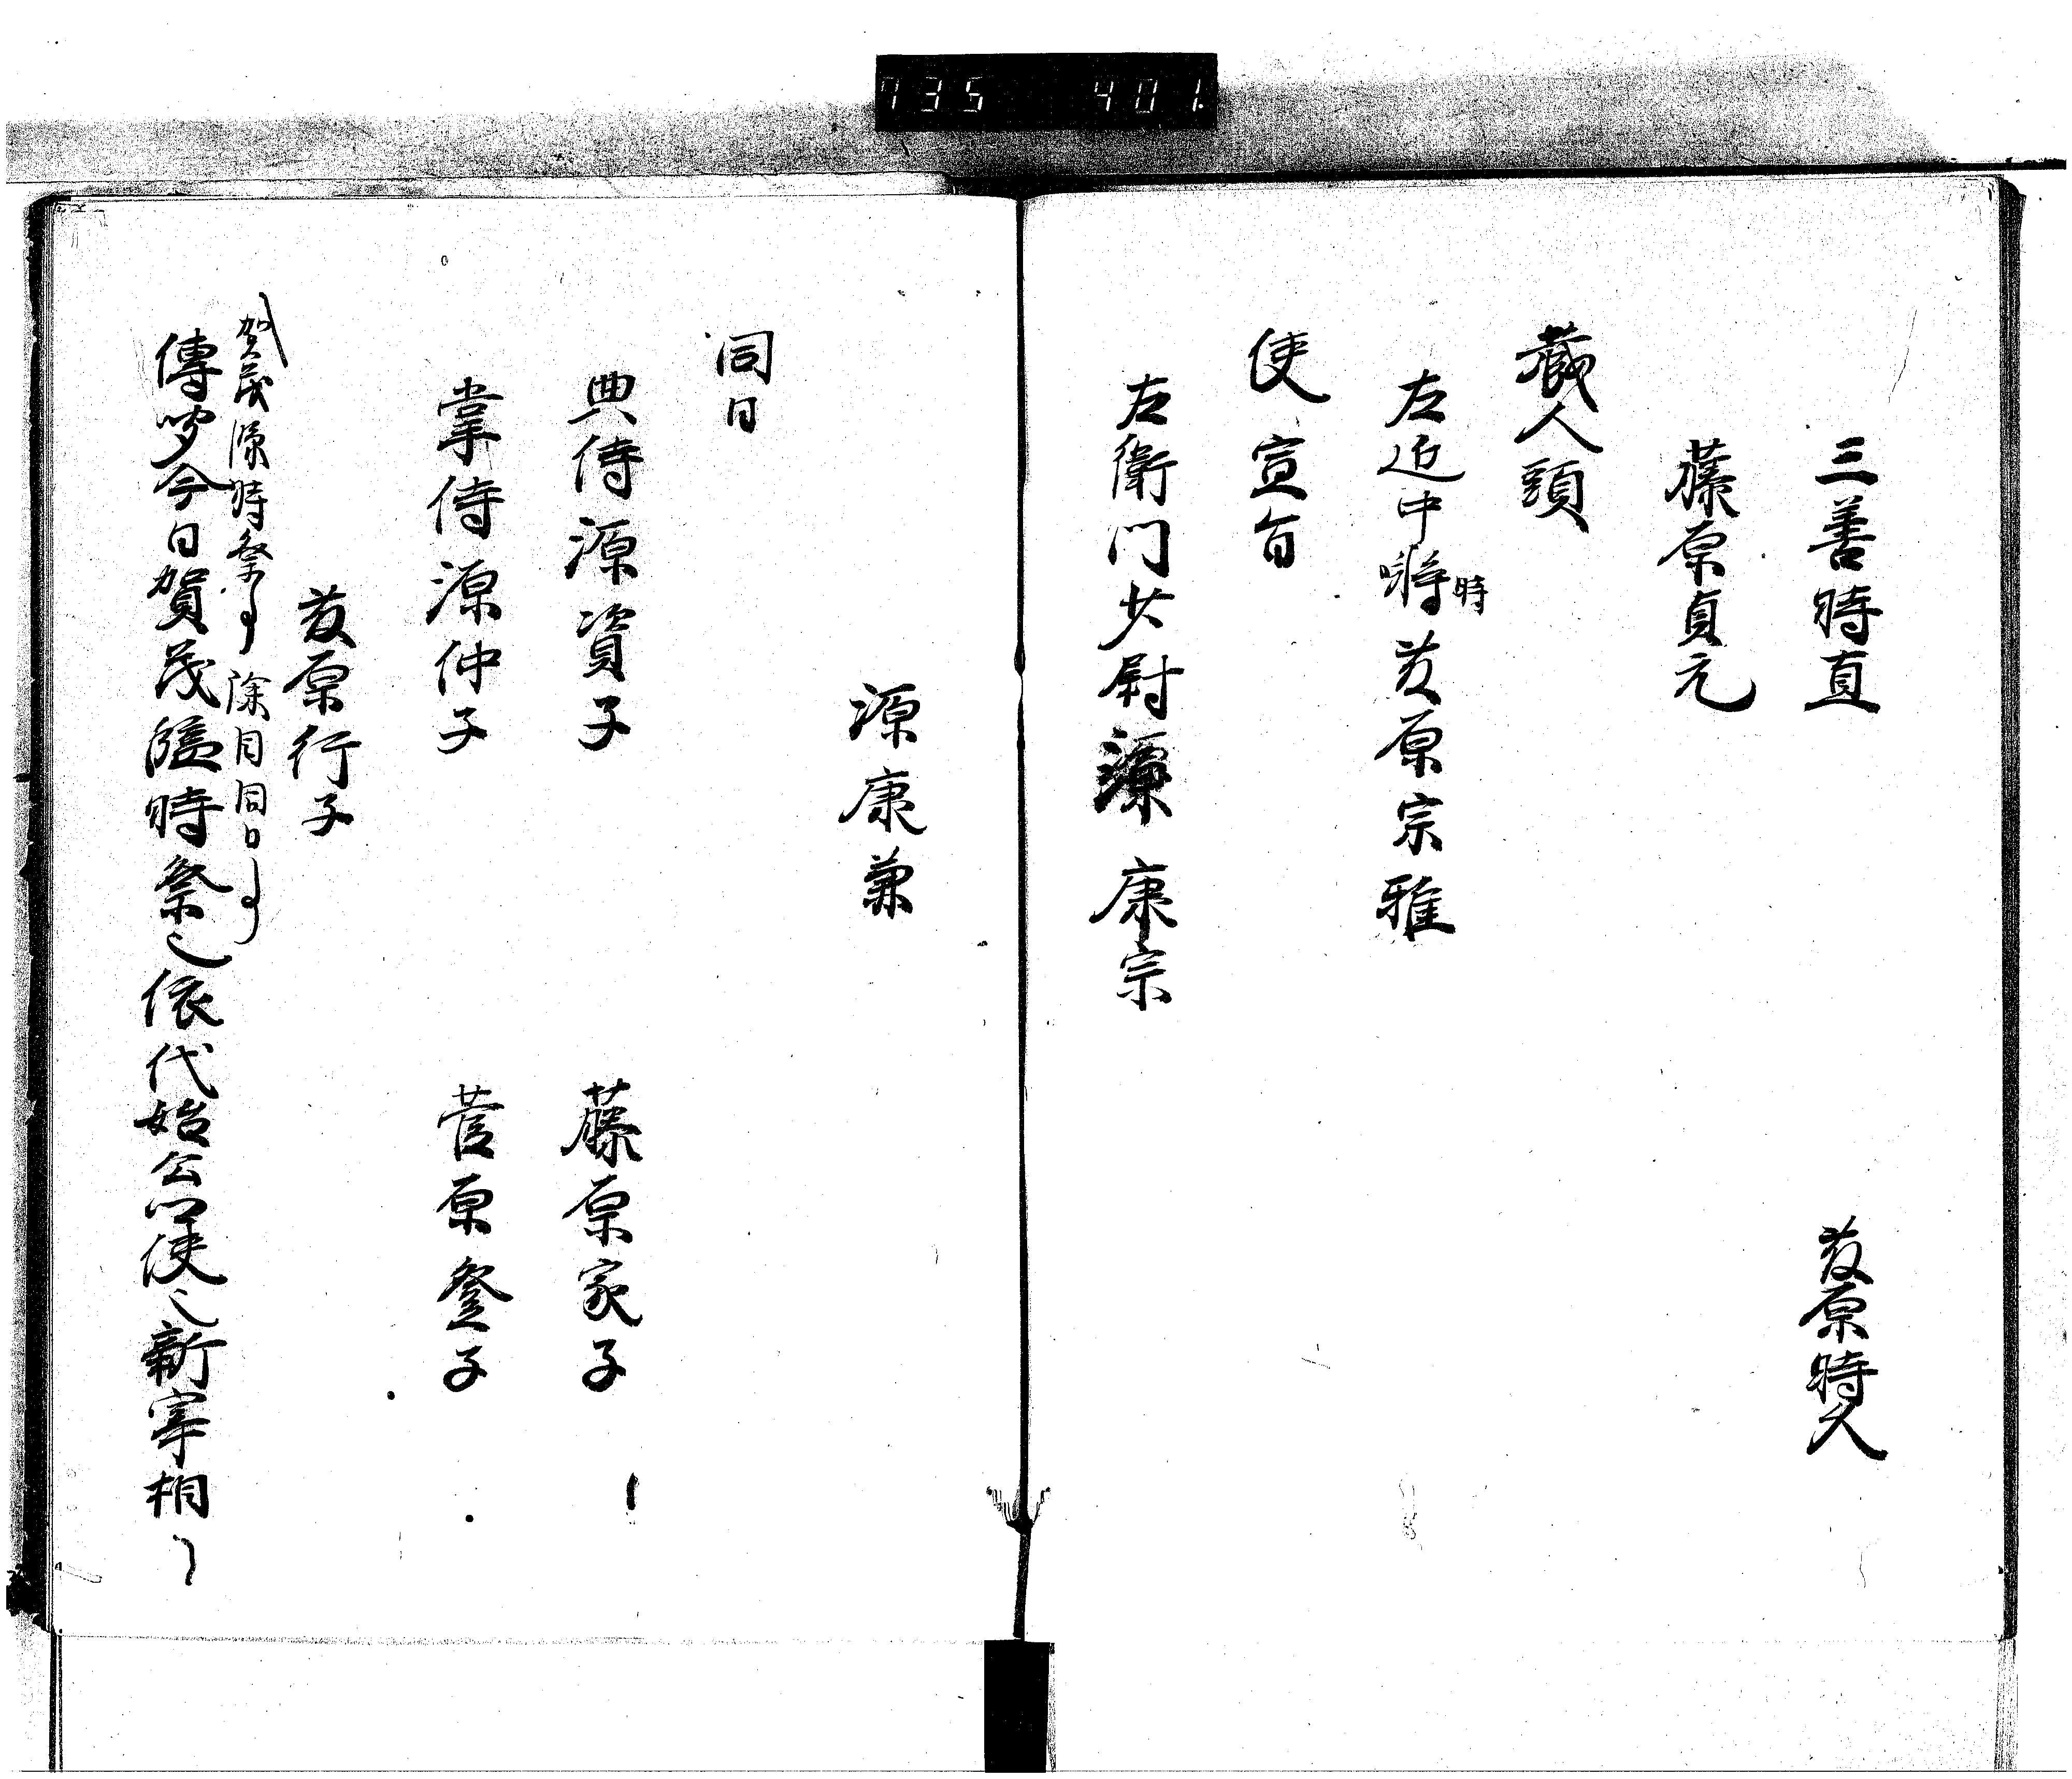 735 401
三善時直 藤原時久
藤原貞元
蔵人頭
左近中將藤原宗雅
時
使宣旨
左衛門少尉源康宗
源康兼
同日
典侍源資子 藤原家子
掌侍源仲子 菅原登子
藤原行子
賀茂臨時祭事 除目同日事
傳聞今日賀茂臨時祭也依代始公卿使也新宰相